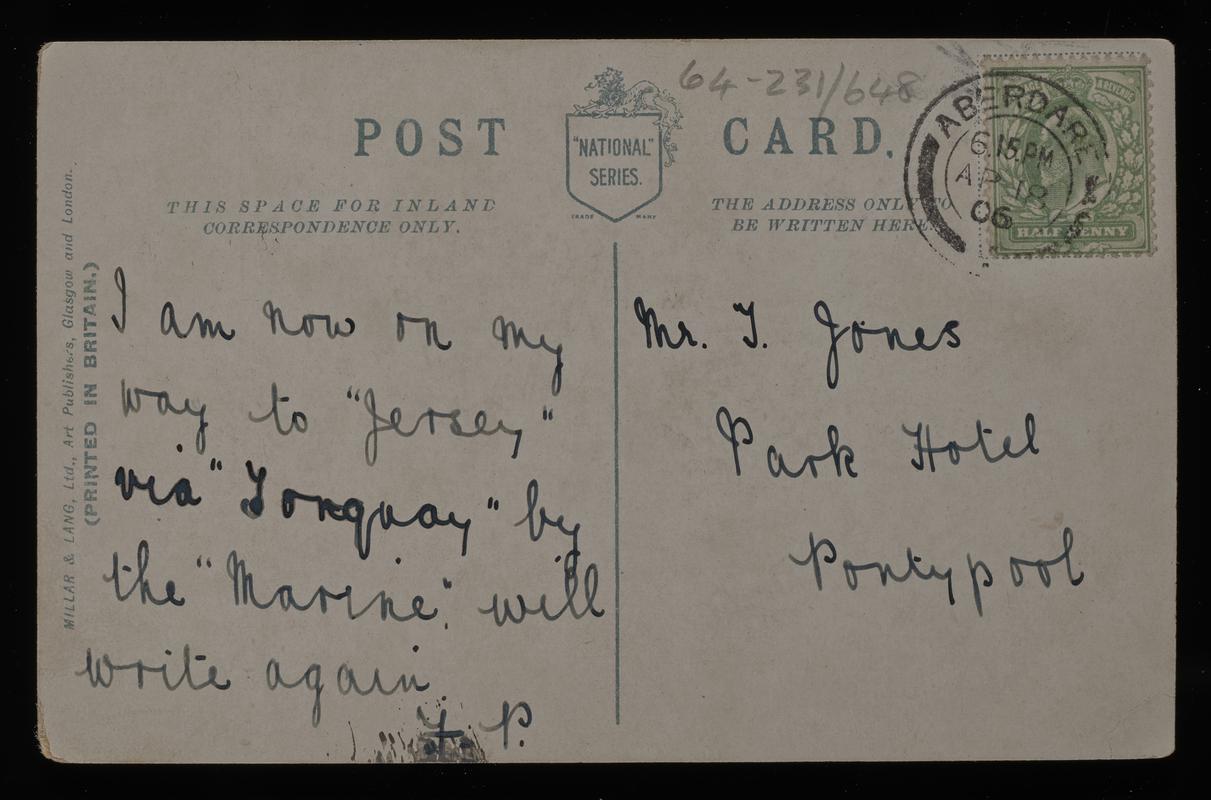 64-231/648
POST CARD.
"NATIONAL"
SERIES.
TRADE MARK
THIS SPACE FOR INLAND
CORRESPONDENCE ONLY.
THE ADDRESS ONLY TO
BE WRITTEN HERE.
ABERDARE
6.15 PM
AP 18
06
HALFPENNY
MILLAR & LANG, Ltd., Art Publishers, Glasgow and London.
(PRINTED IN BRITAIN.)
I am now on my
way to "Jersey"
via "Torquay" by
the "Marine". will
write again.
T. P.
Mr. T. Jones
Park Hotel
Pontypool